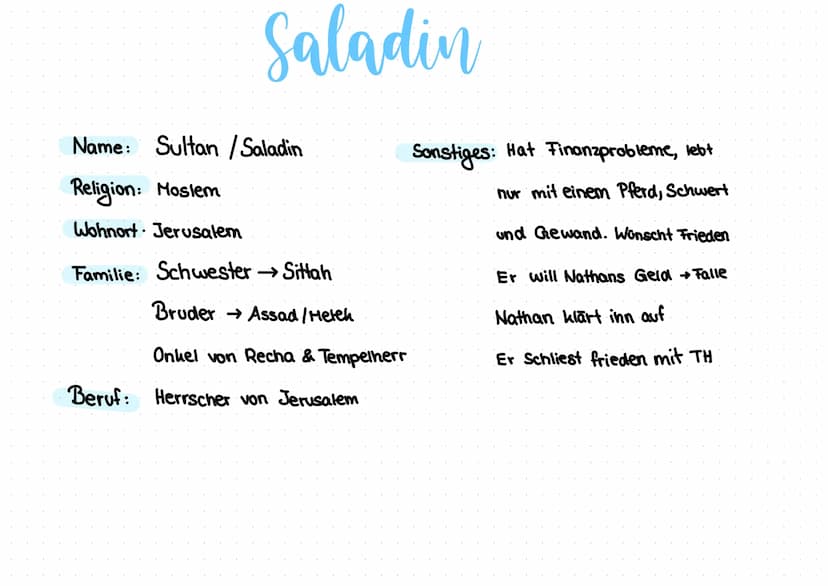 Saladin
Name: Sultan / Saladin
Religion: Moslem
Wohnort. Jerusalem
Familie: Schwester → Sittah
Bruder → Assad / Melek
Onkel von Recha & Tempelherr
Beruf: Herrscher von Jerusalem
Sonstiges: Hat Finanzprobleme, lebt
nur mit einem Pferd, Schwert
und Gewand. Wünscht Frieden
Er will Nathans Geld → Falle
Nathan klärt ihn auf
Er Schliest frieden mit TH